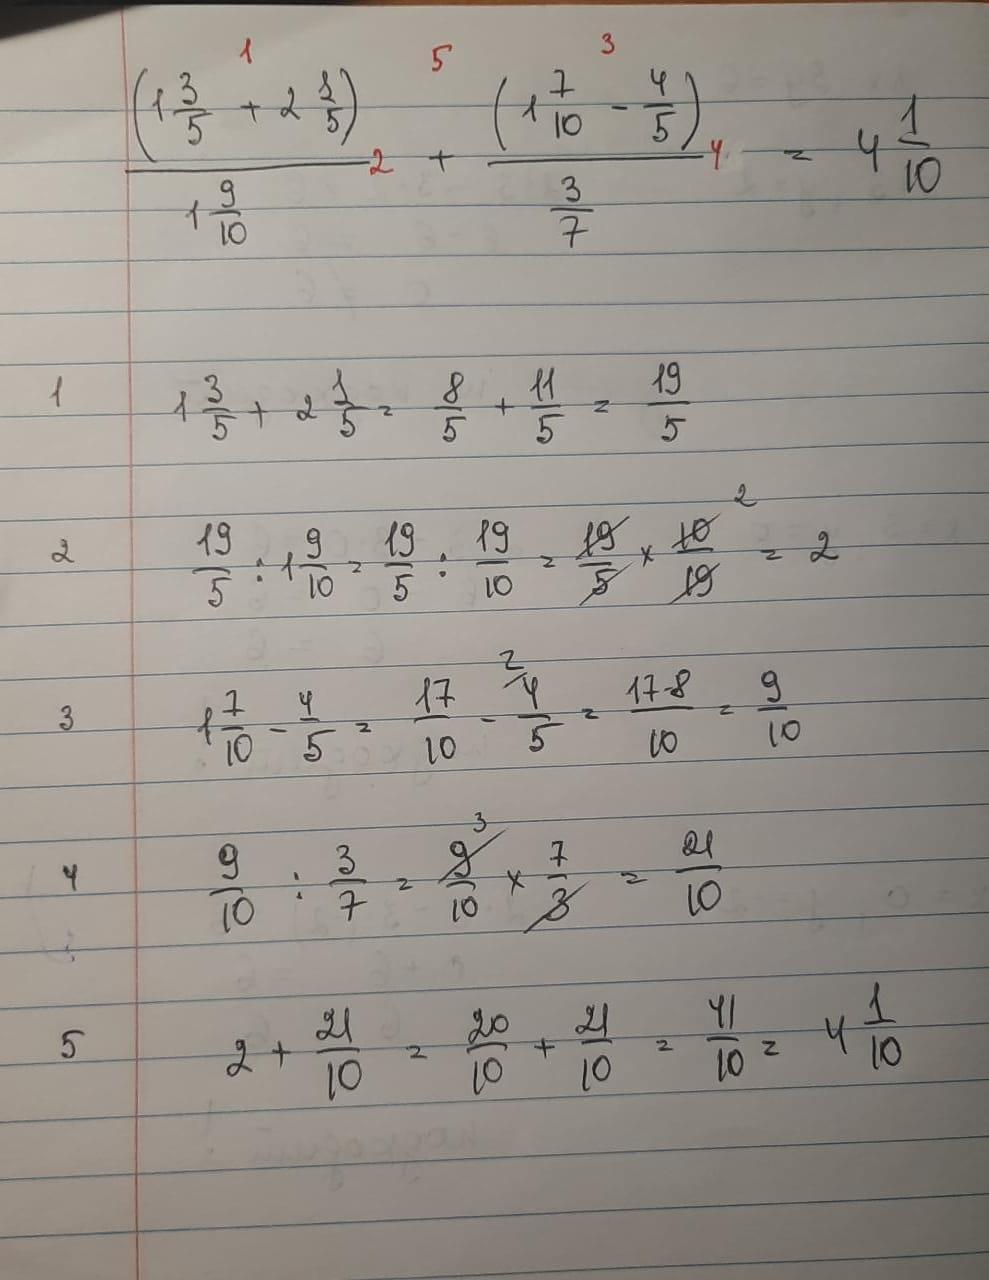 (1 3/5 + 2 1/5) / 1 9/10 + (1 7/10 - 4/5) / 3/7 = 4 1/10
1 5 3
2 4
1 1 3/5 + 2 1/5 = 8/5 + 11/5 = 19/5
2 19/5 : 1 9/10 = 19/5 : 19/10 = 19/5 × 10/19 2 = 2
3 1 7/10 - 4/5 = 17/10 - 2/ 4/5 = 17-8/10 = 9/10
4 9/10 : 3/7 = 9/10 3 × 7/3 = 21/10
5 2 + 21/10 = 20/10 + 21/10 = 41/10 = 4 1/10